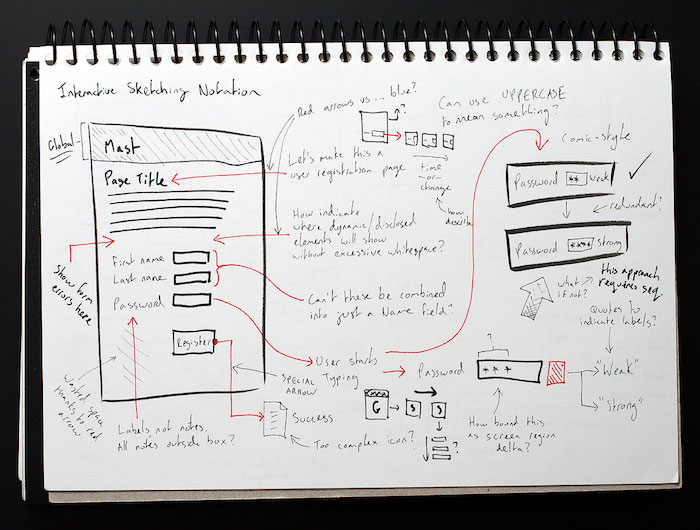 Interactive Sketching Notation
Global
Mast
Page Title
First name
Last name
Password
Register
Show form
errors here
Wasted space
thanks to red
arrow
Labels not notes.
All notes outside box?
Red arrows vs ... blue?
Let's make this a
user registration page
How indicate
where dynamic/disclosed
elements will show
without excessive whitespace?
Can't these be combined
into just a Name field?
User starts
Typing
SPECIAL
ARROW
Success
Too complex icon?
?
time
-or-
change
how
describe
Can use UPPERCASE
to mean something?
Comic-style
Password ** Weak
redundant?
Password **** Strong
what
if not?
this approach
requires seq.
Quotes to
indicate labels?
Password
?
***
"Weak"
"Strong"
How bound this
as screen region
delta?
G
S
S
?